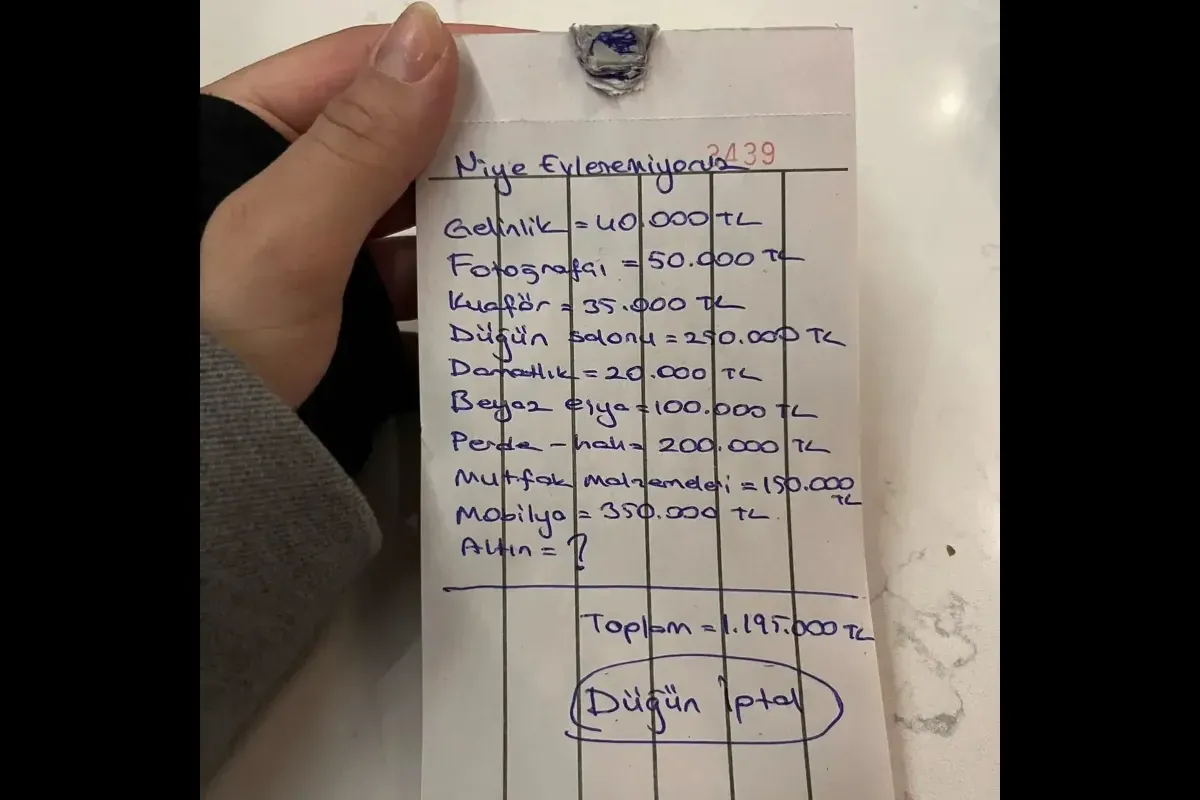 3439
Niye Evlenemiyoruz
Gelinlik = 40.000 TL
Fotoğrafçı = 50.000 TL
Kuaför = 35.000 TL
Düğün salonu = 250.000 TL
Damatlık = 20.000 TL
Beyaz eşya = 100.000 TL
Perde - halı = 200.000 TL
Mutfak malzemeleri = 150.000 TL
Mobilya = 350.000 TL
Altın = ?
Toplam = 1.195.000 TL
Düğün İptal